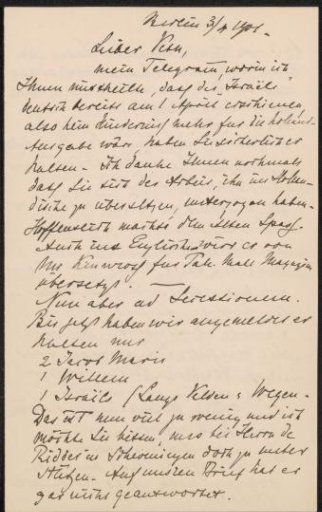 Berlin 3/4 1901.
Lieber Veth,
mein Telegramm, worin ich
Ihnen mittheilte, daß der "Israëls"
deutsch bereits am 1 April erschienen,
also kein Hinderniß mehr für die holländ.
Ausgabe wär, haben Sie sicherlich er-
halten. Ich danke Ihnen nochmals
daß Sie sich der Arbeit, ihn ins Hollän-
dische zu übersetzen, unterzogen haben.
Hoffentlich machts dem Alten Spaß.
Auch ins Englische wird es von
Mrs für Pall Mall Magazin
übersetzt.
Nun aber ad Secessionem.
Bis jetzt haben wir angemeldet er-
halten nur
2 Jacob Maris
1 Willem
1 Israëls (Langs Velden &amp; Wegen.
Das ist nun viel zu wenig und ich
möchte Sie bitten, uns bei Herrn de
Ridder in doch zu unter-
stützen. Auf unseren Brief hat er
gar nicht geantwortet.